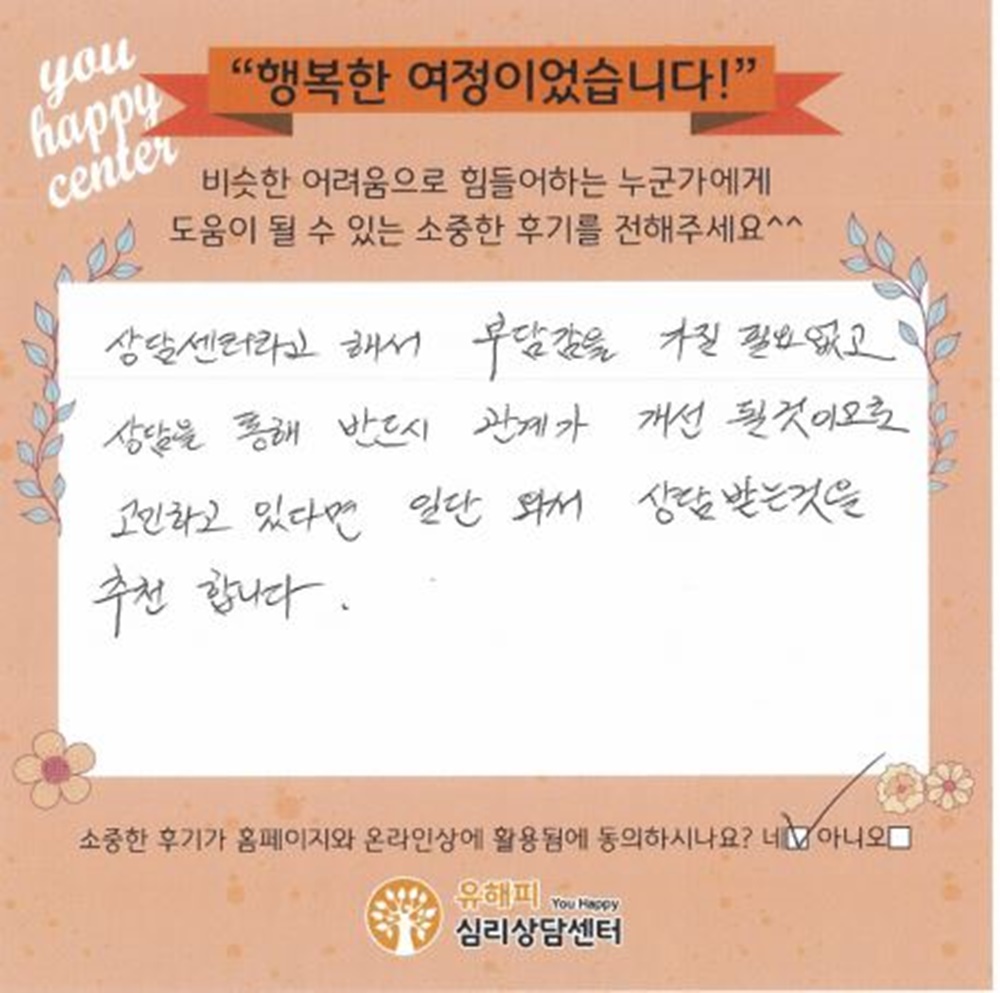 you
happy
center
“행복한 여정이었습니다!”
비슷한 어려움으로 힘들어하는 누군가에게
도움이 될 수 있는 소중한 후기를 전해주세요^^
상담센터라고 해서 부담감을 가질 필요없고
상담을 통해 반드시 관계가 개선 될것이므로
고민하고 있다면 일단 와서 상담받는것을
추천 합니다.
소중한 후기가 홈페이지와 온라인상에 활용됨에 동의하시나요? 네 아니오
유해피 You Happy
심리상담센터